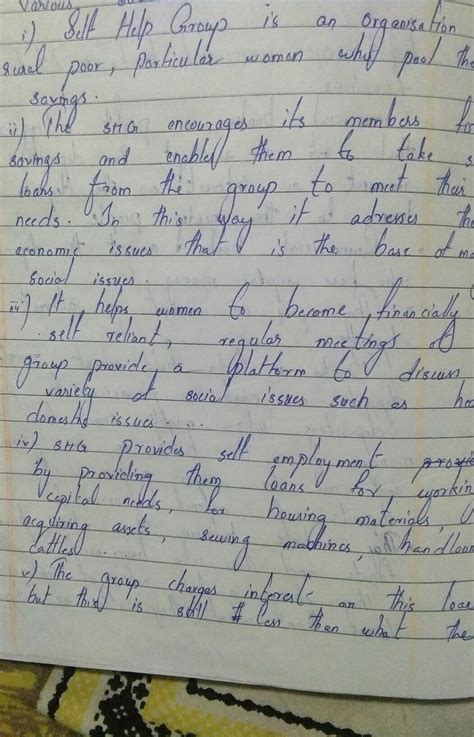 Various
i) Self Help Group is an organisation
rural poor, particular women who pool the
savings.
ii) The SHG encourages its members for
savings and enabled them to take s
loans from the group to meet their
needs. In this way it adresses the
economic issues that is the base of mo
social issues.
iii) It helps women to become financially
self reliant, regular meetings of
group provide a platform to discuss
variety of social issues such as hea
domestic issues...
iv) SHG provides self employment provi
by providing them loans for workin
capital needs, for housing materials,
acquiring assets, sewing machines, handloo
cattles...
v) The group charges interest on this loan
but this is still less than what the